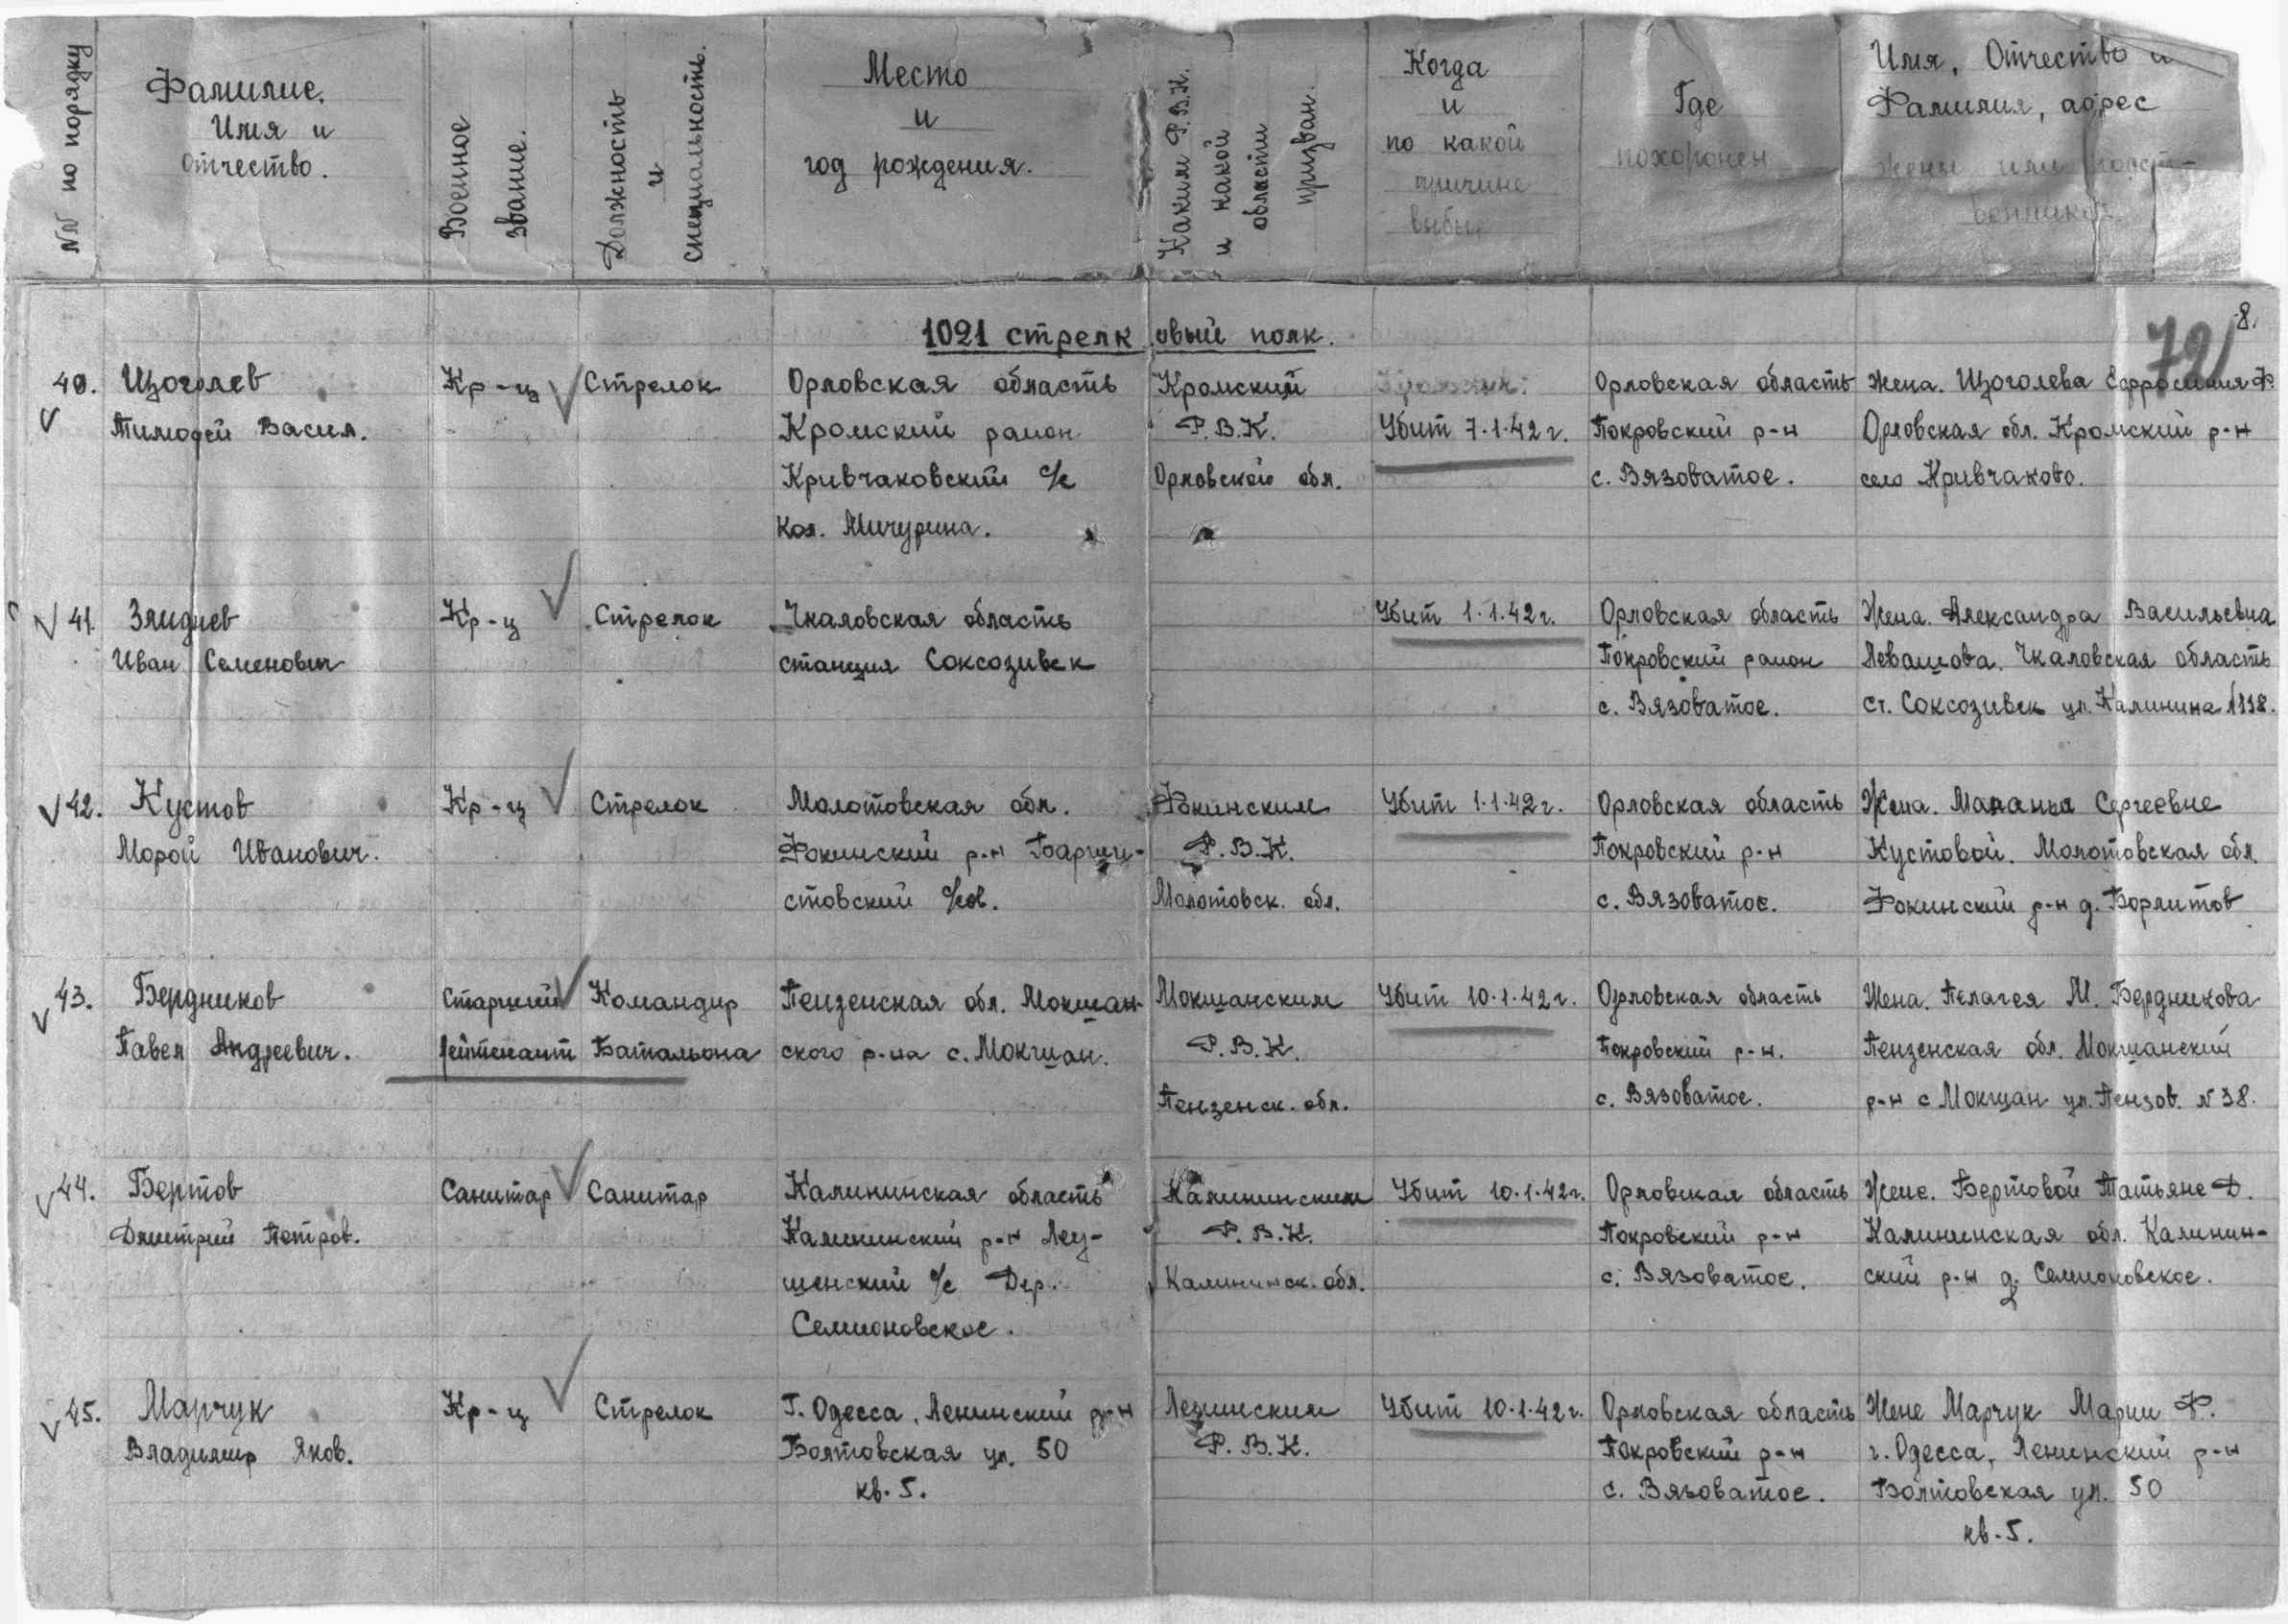 №№ по порядку
Фамилие,
Имя и
Отчество.
Военное
звание.
Должность
и
специальность.
Место
и
год рождения.
Каким Р.В.К.
и какой
области
призван.
Когда
и
по какой
причине
выбыл
Где
похоронен
Имя, Отчество и
Фамилия, адрес
жены или родст-
венников
8.
72
1021 стрелковый полк.
40. Щоголев
Тимофей Васил.
Кр-ц
Стрелок
Орловская область
Кромский район
Кривчаковский с/с
Кол. Мичурина.
Кромский
Р.В.К.
Орловской обл.
Убит 7.1.42 г.
Орловская область
Покровский р-н
с. Вязоватое.
Жена. Щоголева Ефросиния Ф.
Орловская обл. Кромский р-н
село Кривчаково.
41.
Иван Семенович
Кр-ц
Стрелок
Чкаловская область
станция Соксозивек
Убит 1.1.42 г.
Орловская область
Покровский район
с. Вязоватое.
Жена. Александра Васильевна
Левашова. Чкаловская область
ст. Соксозивек ул. Калинина
42. Кустов
Морой Иванович.
Кр-ц
Стрелок
Молотовская обл.
Фокинский р-н
стовский с/сов.
Фокинским
Р.В.К.
Молотовск. обл.
Убит 1.1.42 г.
Орловская область
Покровский р-н
с. Вязоватое.
Жена. Маланья Сергеевне
Кустовой. Молотовская обл.
Фокинский р-н д.
43. Бердников
Павел Андреевич.
Старший
лейтенант
Командир
Батальона
Пензенская обл. Мокшан-
ского р-на с. Мокшан.
Мокшанским
Р.В.К.
Пензенск. обл.
Убит 10.1.42 г.
Орловская область
Покровский р-н.
с. Вязоватое.
Жена. Пелагея М. Бердникова
Пензенская обл. Мокшанский
р-н с Мокшан ул. Пензов. №38.
44. Бертов
Дмитрий Петров.
Санитар
Санитар
Калининская область
Калининский р-н Леу-
шенский с/с Дер.
Семионовское.
Калининским
Р.В.К.
Калининск. обл.
Убит 10.1.42 г.
Орловская область
Покровский р-н
с. Вязоватое.
Жене. Бертовой Татьяне Д.
Калининская обл. Калинин-
ский р-н д. Семионовское.
45. Марчук
Владимир Яков.
Кр-ц
Стрелок
Г. Одесса, Ленинский р-н
Болтовская ул. 50
кв. 5.
Ленинским
Р.В.К.
Убит 10.1.42 г.
Орловская область
Покровский р-н
с. Вязоватое.
Жене Марчук Марии Ф.
г. Одесса, Ленинский р-н
Болтовская ул. 50
кв. 5.